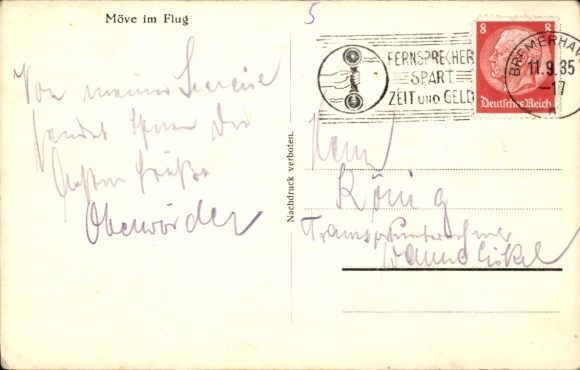 Möve im Flug
5
Von meiner Seereise
sendet Ihnen die
besten Grüße
Oberwörder
Nachdruck verboten.
FERNSPRECHER
SPART
ZEIT UND GELD
8 8
Deutsches Reich
BREMERHAV
11.9.35
—17
Herrn
König
Transportunternehmer
Wanne Eickel